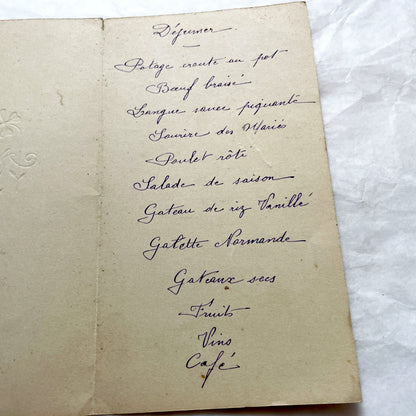 Déjeuner
Potage croute au pot
Bœuf braisé
Langue sauce piquante
Sourire des Mariés
Poulet rôti
Salade de saison
Gateau de riz Vanillé
Galette Normande
Gateaux secs
Fruits
Vins
Café